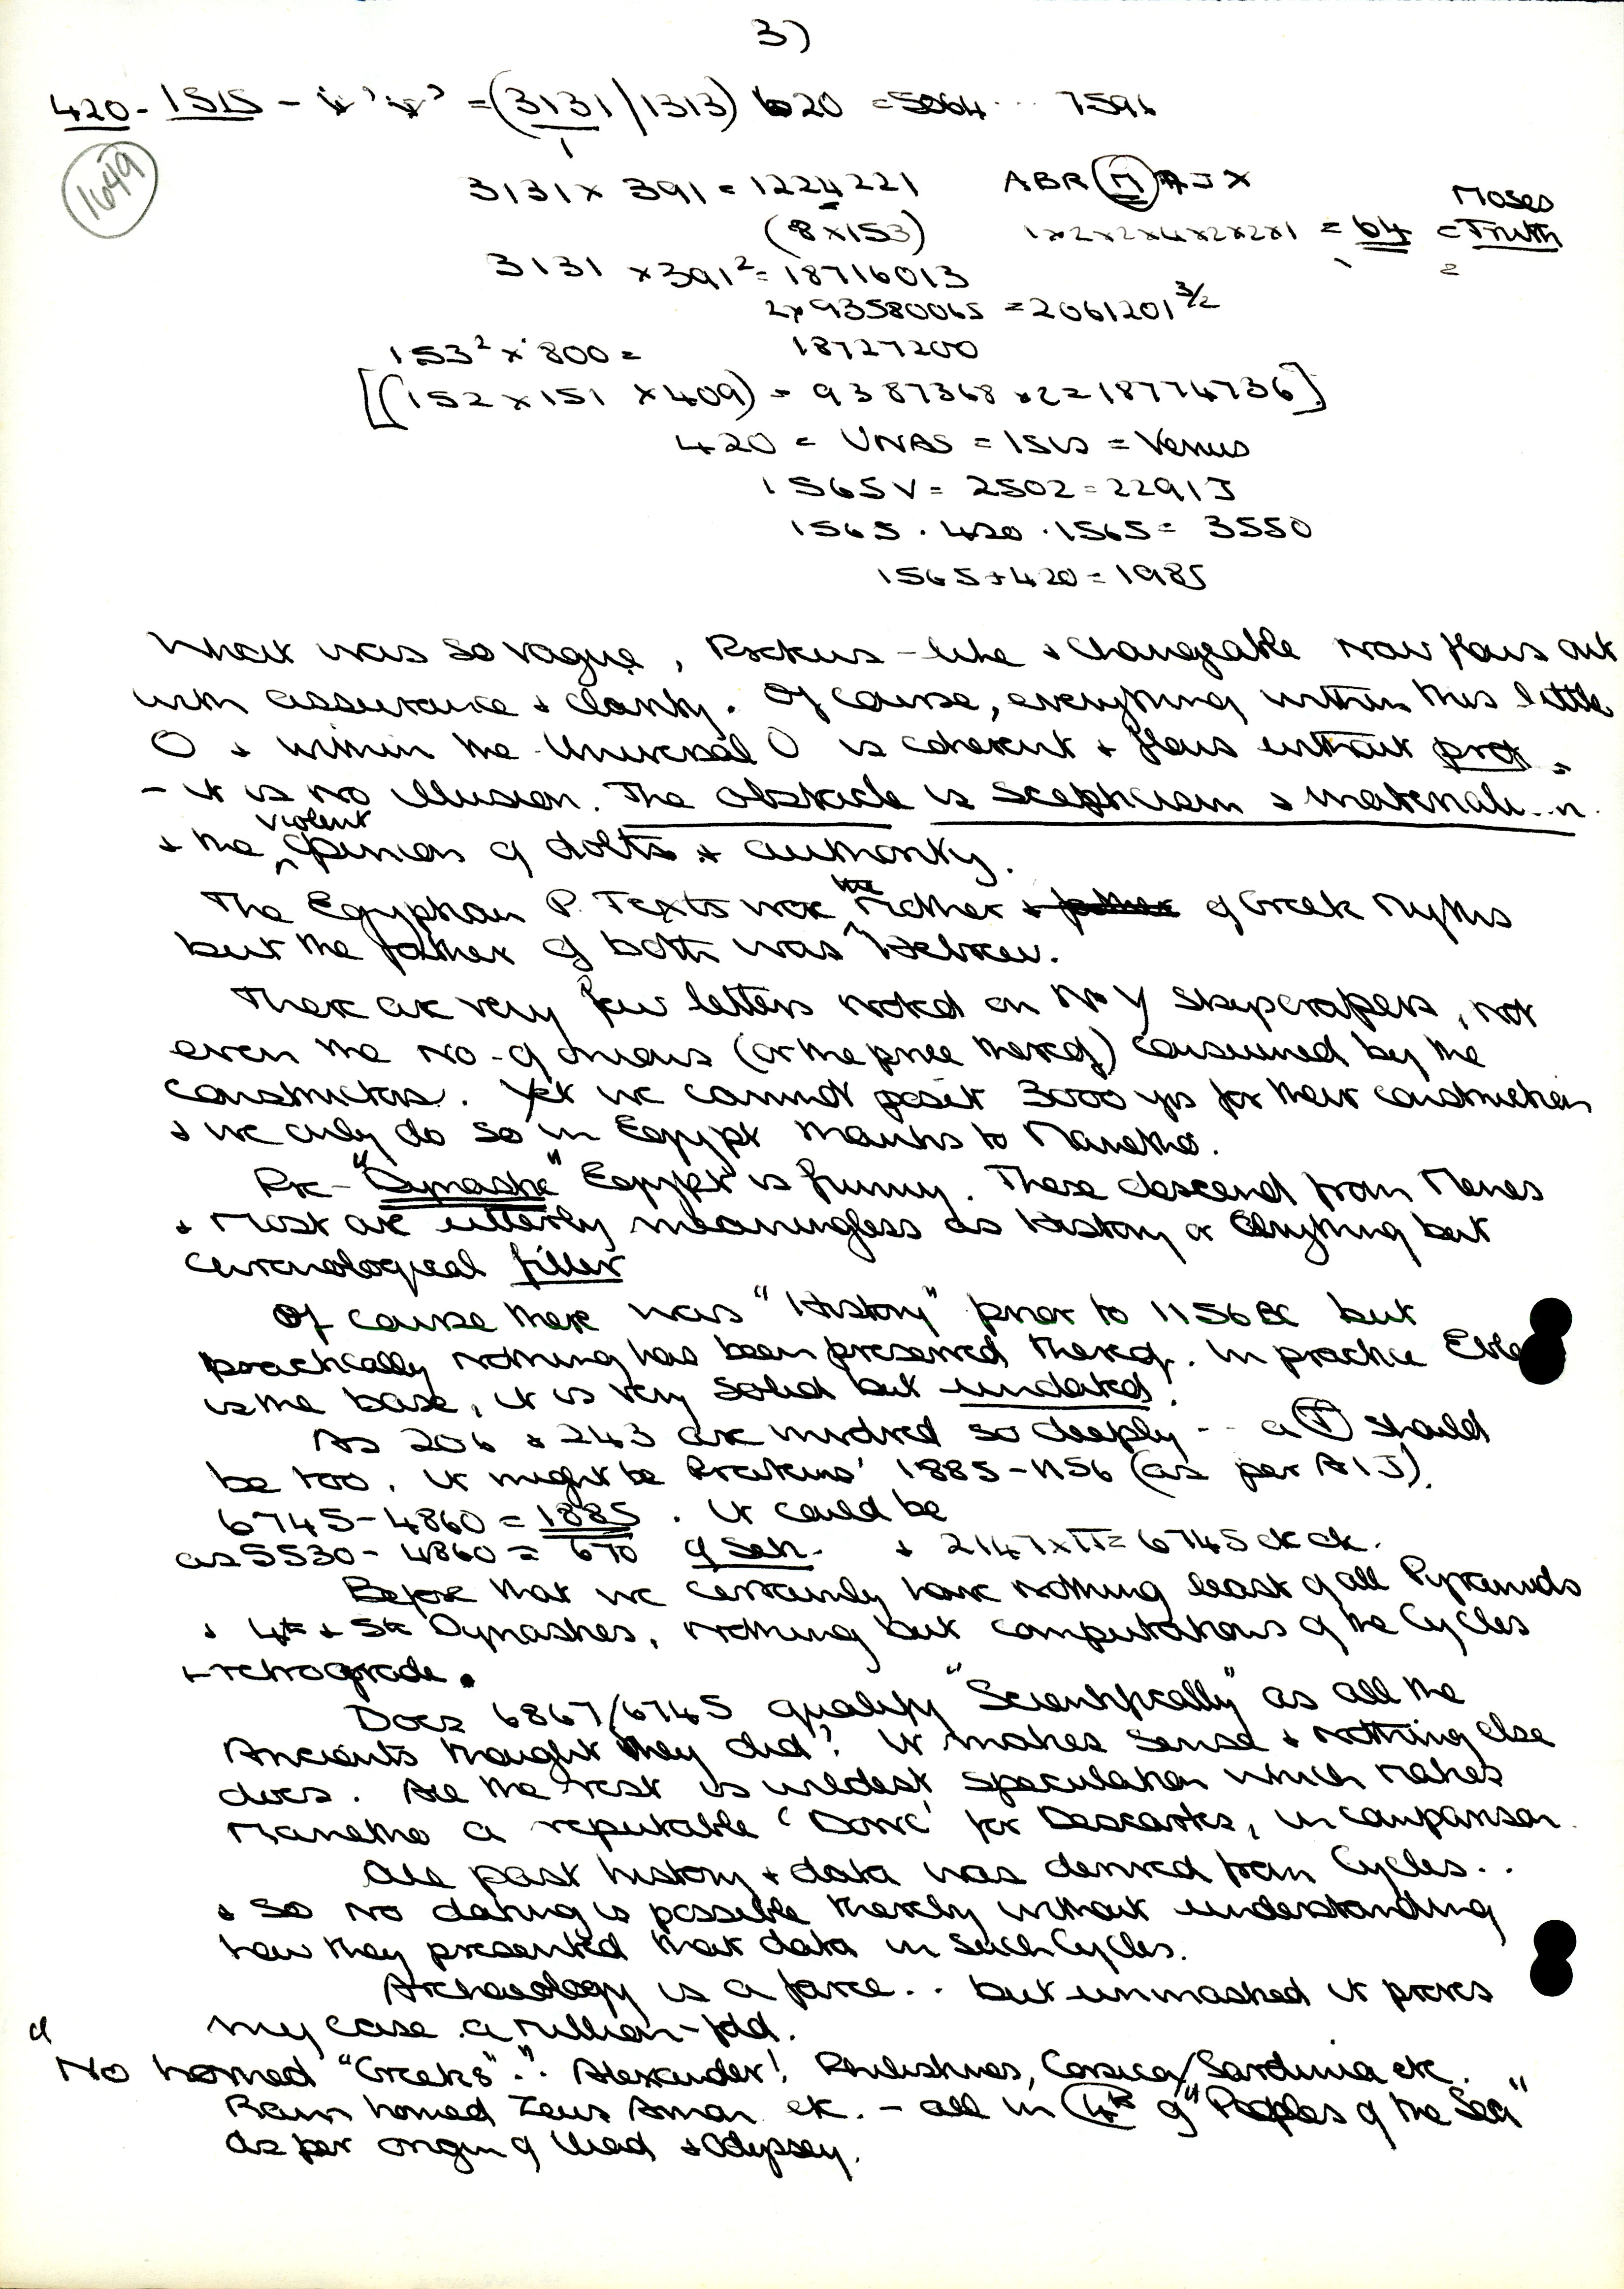 3)
420 - ISIS - = (3131/1313) 620 = 5064 ... 7596
1
1649
3131 x 391 = 1224221 ABR(M)AJX Moses
(8x153) 1x2x2x4x2x2x1 = 64 = Truth
3131 x 391² = 18716013
2x93580065 = 2061201 3/2
153² x 800 = 18727200
[(152 x 151 x 409) = 9387368 x 2 = 18774736]
420 = UNAS = ISIS = Venus
1565V = 2502 = 2291J
1565 . 420 . 1565 = 3550
1565 + 420 = 1985
What was so vague, Proteus-like & changeable now flows out
with assurance & clarity. Of course, everything within this little
O & within the Universal O is coherent & flows without
- it is no illusion. The obstacle is scepticism &
& the violent opinion of dolts & authority.
The Egyptian P. Texts were the Mother & father of Greek Myths
but the father of both was Hebrew.
There are very few letters noted on N Y skyscrapers, not
even the no. of onions (or the price thereof) consumed by the
constructors. Yet we cannot posit 3000 yrs for their construction
& we only do so in Egypt thanks to Manetho.
Pre-"Dynastic" Egypt is funny. These descend from Menes
& most are utterly meaningless as History or Anything but
chronological filler
Of course there was "History" prior to 1156 BC but
practically nothing has been preserved thereof. In practice
is the base, it is very solid but undated!
As 206 & 243 are involved so deeply -- a (T) should
be too. It might be Proteus' 1885-1156 (as per A1J).
6745 - 4860 = 1885. It could be
as 5530 - 4860 = 670 of Seh. & 2147 x π = 6745 ck ck.
Before that we certainly have nothing least of all Pyramids
& 4th & 5th Dynasties, nothing but computations of the Cycles
& retrograde.
Does 6867/6745 qualify "Scientifically" as all the
Ancients thought they did? It makes sense & nothing else
does. All the rest is wildest speculation which makes
Manetho a reputable 'Dove' for Descartes, in comparison.
All past history & data was derived from Cycles..
& so no dating is possible thereby without understanding
how they presented that data in such Cycles.
Archaeology is a farce.. but unmasked it proves
my case a million-fold.
"No horned "Greeks".". Alexander! Philistines, Corsica/Sardinia etc.
Ram horned Zeus Amon etc. - all in 4th of "Peoples of the Sea"
as per origin of Iliad & Odyssey.